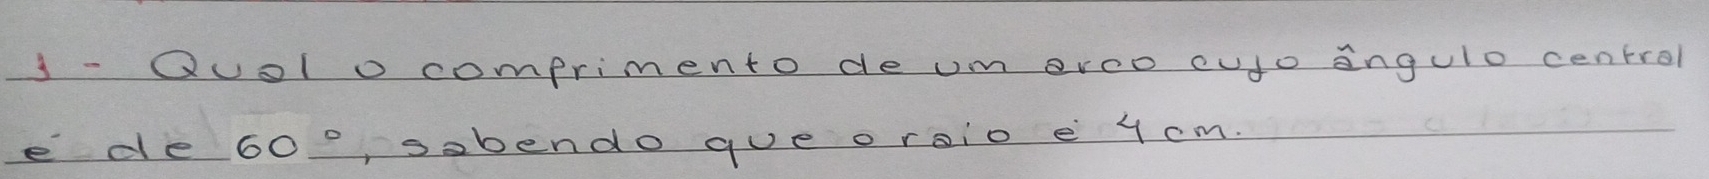 1 - Qual o comprimento de um arco cujo ângulo central
é de 60°, sabendo que o raio é 4 cm.